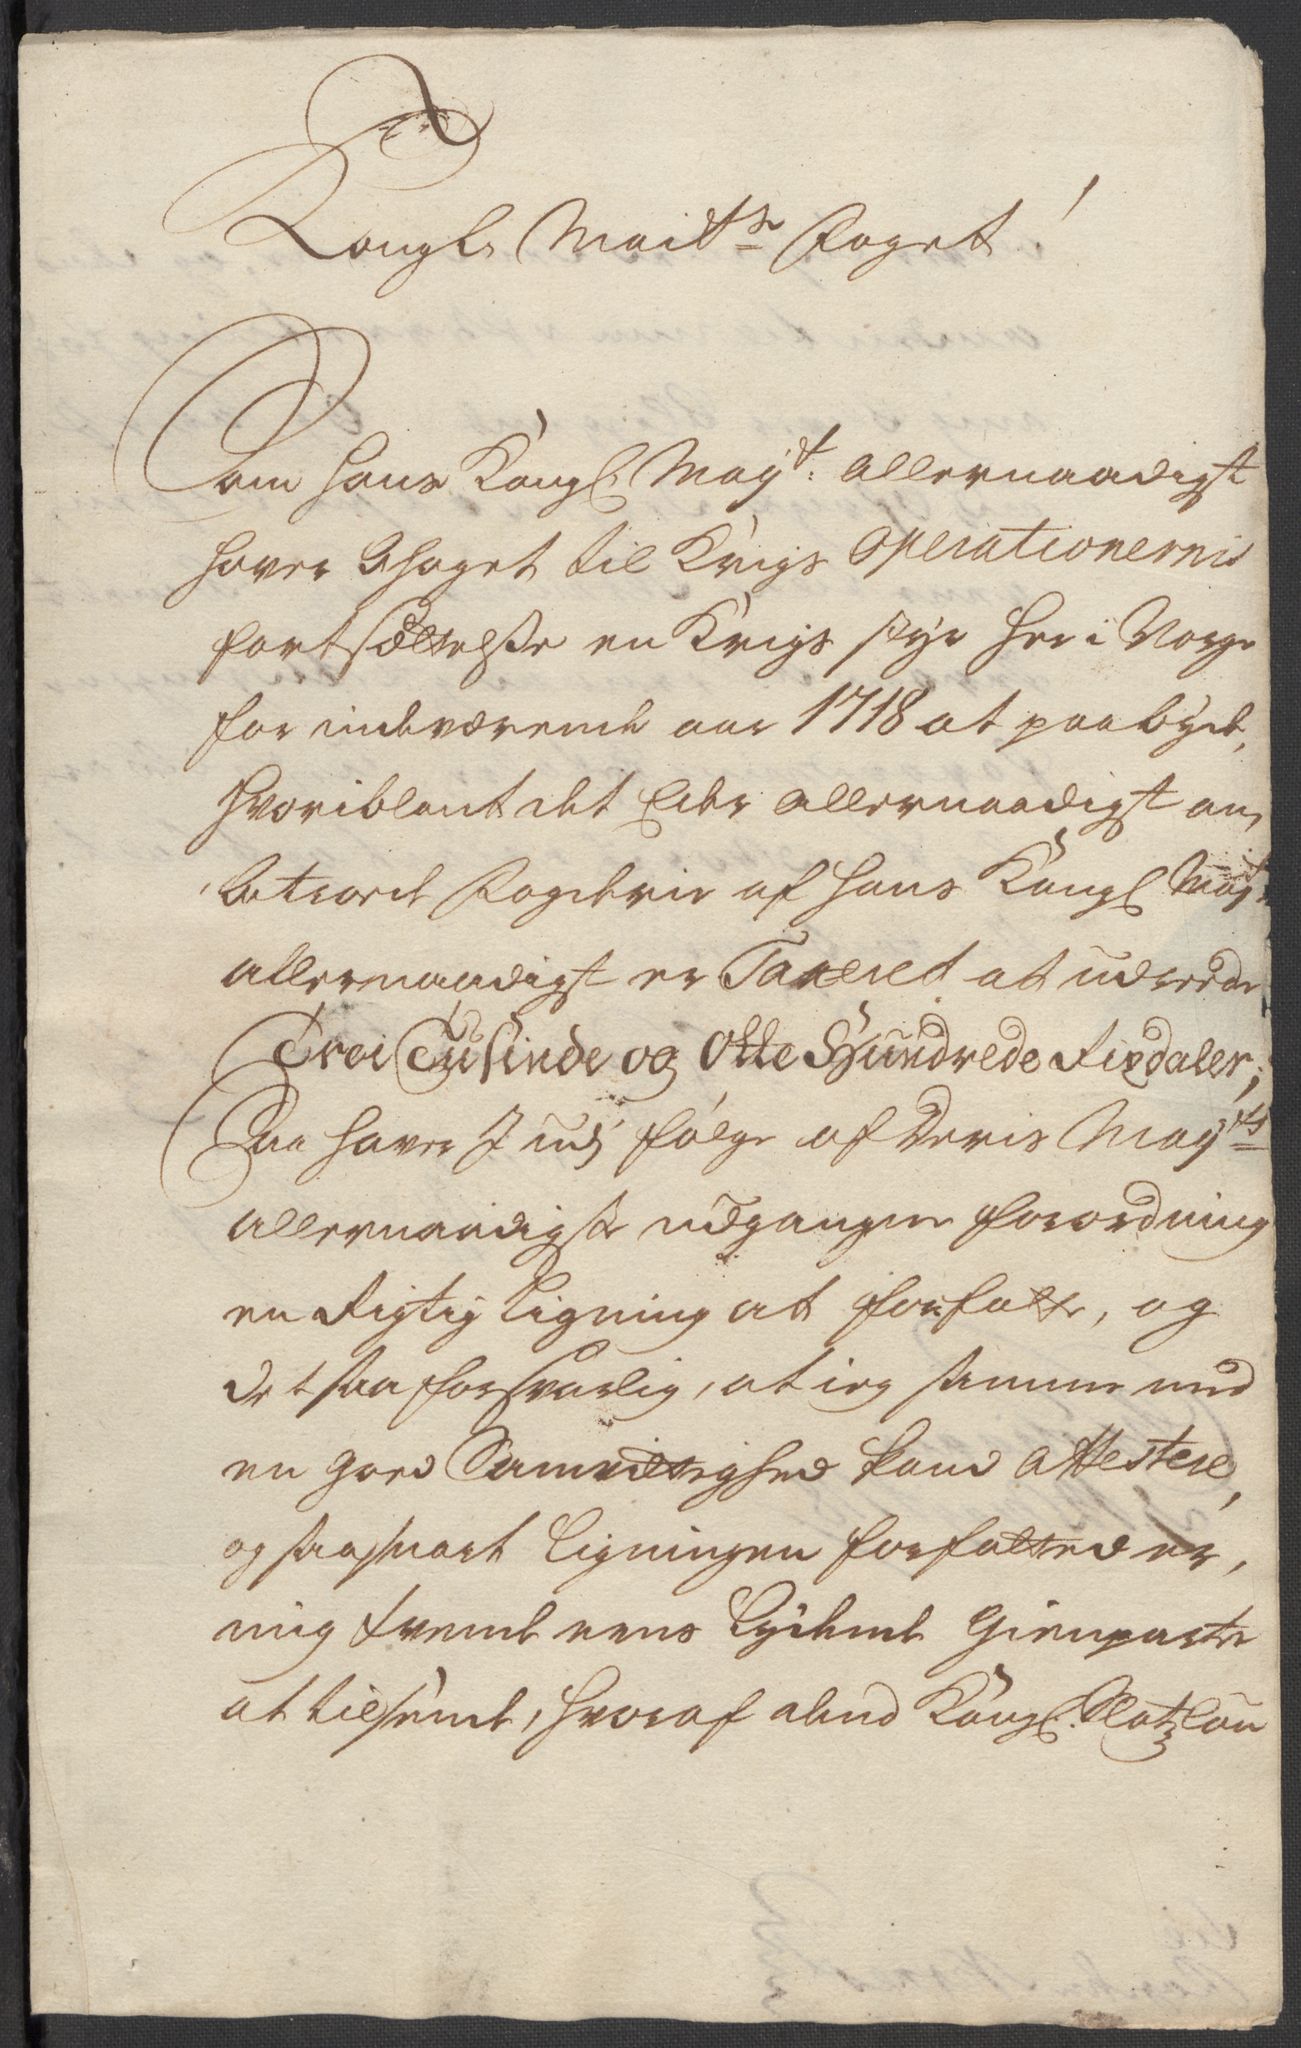 Kongl. Maitts Foget
Som Hans Kongl. Mayt: allernaadigst
haver behaget til Krigs Operationernis
fortsættelsse en Krigs styr her i Norge
for indeværende aar 1718 at paabyde,
hvoriblant det Eder allernaadigst an-
betroede Fogderie af Hans Kongl. Mayt
allernaadigst er Taxered at udrede
Trei Tusinde og Otte Hundrede Rixdaler;
Saa haver I udj følge af Deris Mayts
allernaadigste udgangne forordning
en Rigtig Ligning at forfatte, og
det saa forsvarlig, at ieg samme med
en goed Samvittighed kand Attestere,
og saasnart Ligningen forfatted er,
mig tvende eens Lydende Gienparter
at tilsende, hvoraf den Kongl. Slotzlou